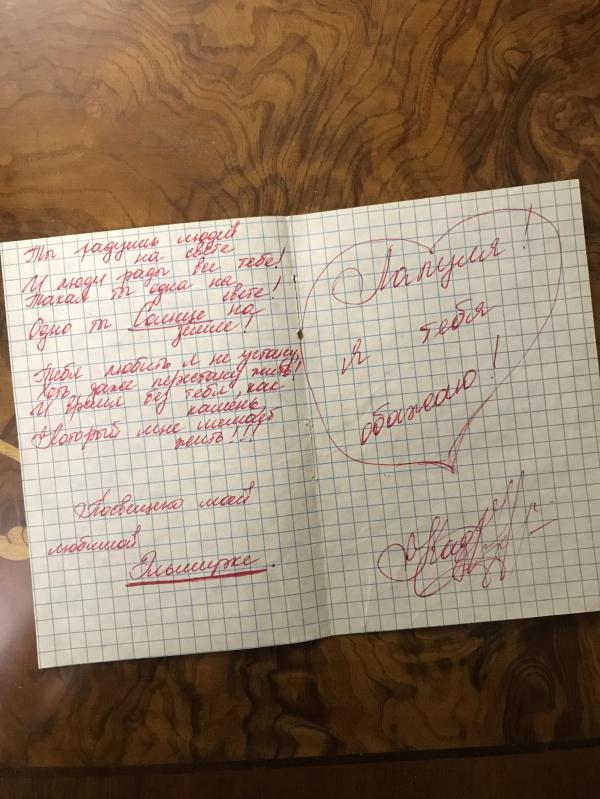 Ты радуешь людей
на свете
И люди рады все тебе!
Такая ты одна на
свете!
Одно ты Солнце на
земле!
Тебя любить я не устану,
Хоть даже перестану жить!
И время без тебя, как
камень,
Который мне мешает
жить!!!
Посвещено моей
любимой
Эльмирке.
Лапуля!
Я тебя
обажаю!